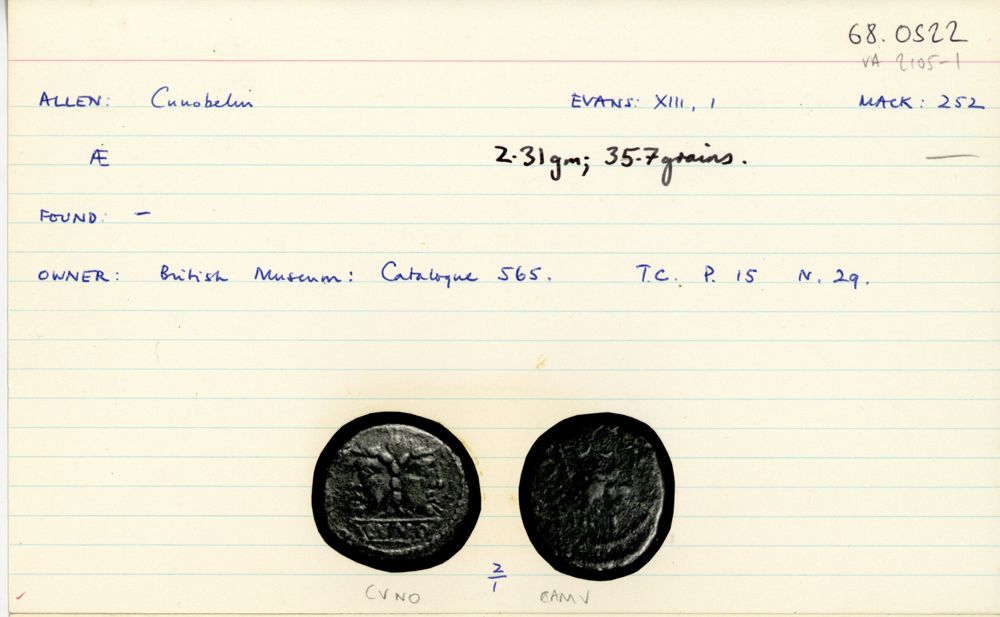 68.0522
VA 2105-1
ALLEN: Cunobelin EVANS: XIII, 1 MACK: 252
Æ 2.31gm; 35.7grains. —
FOUND: —
OWNER: British Museum: Catalogue 565. T.C. P. 15 N. 29.
CUNO
2/1
CVNO CAMV